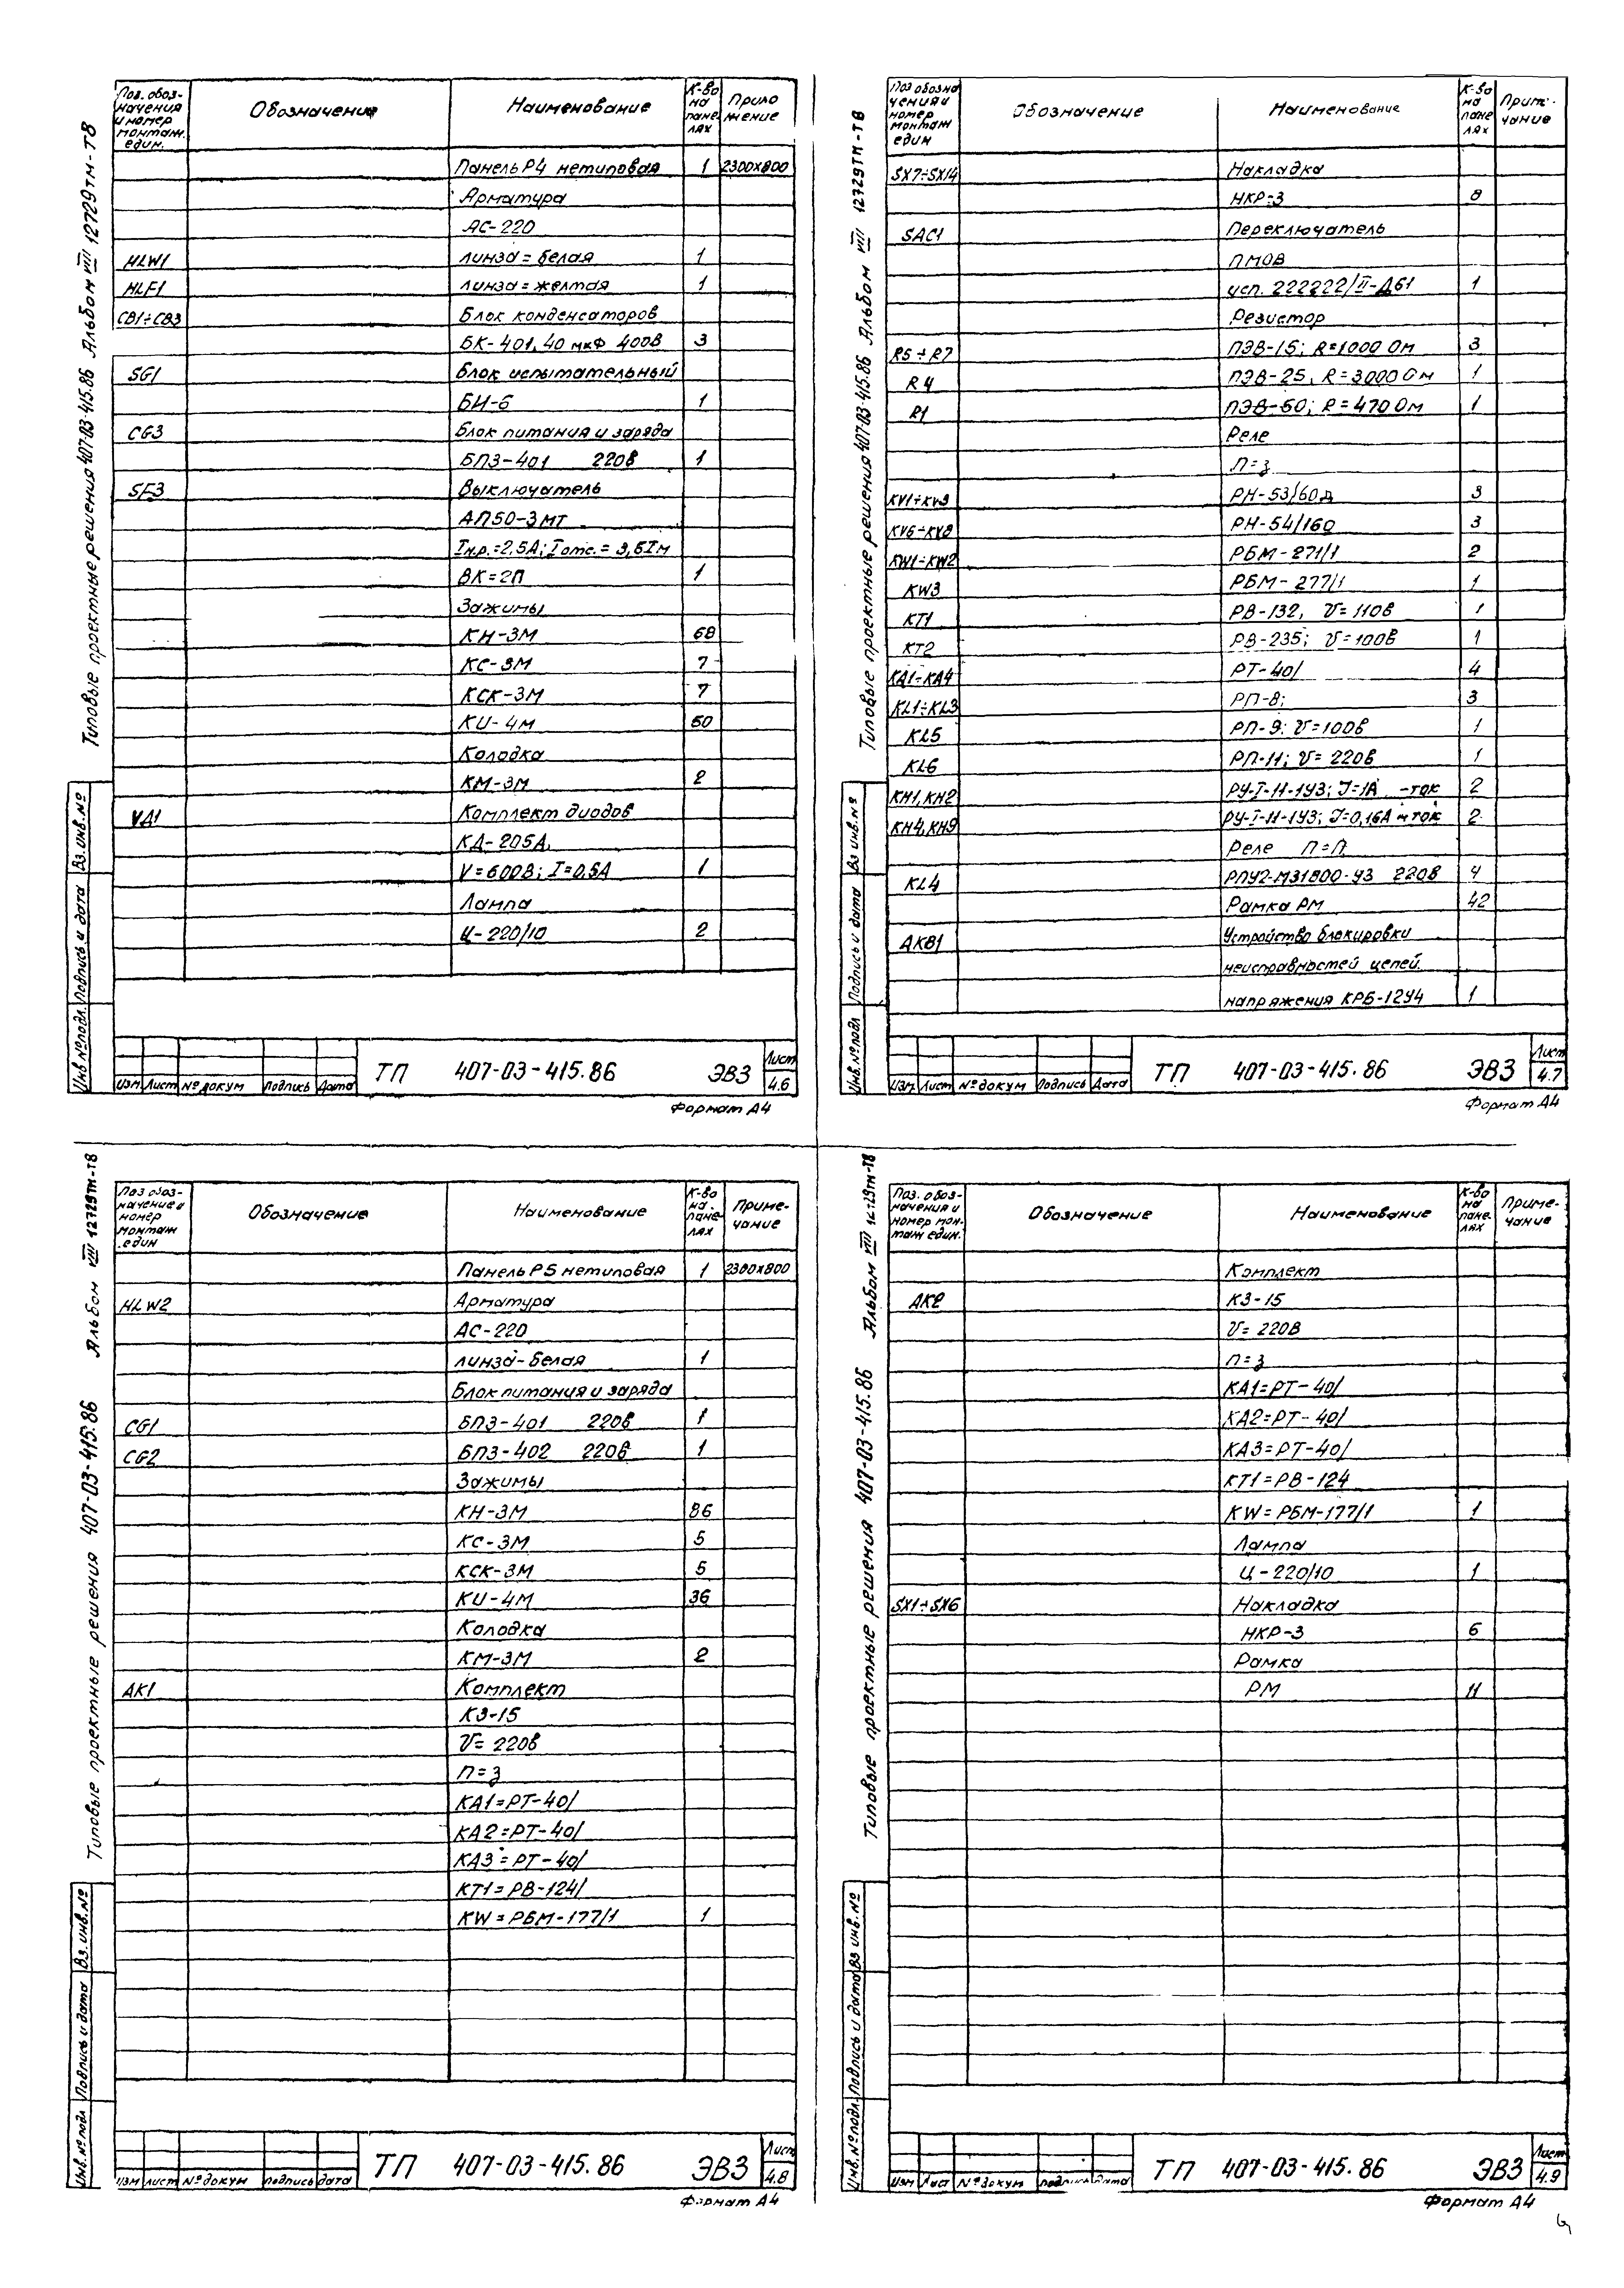 Типовые проектные решения 407-03-415.86 Альбом VIII 12729тм-т8
Поз. обоз-
начения
и номер
монтаж.
един.
Обозначение
Наименование
К-во
на
пане-
лях
Прило
жение
Панель Р4 нетиповая 1 2300х800
Арматура
АС-220
HLW1 линза = белая 1
HLF1 линза = желтая 1
СВ1÷СВ3 Блок конденсаторов
БК-401, 40 мкФ 400В 3
SG1 Блок испытательный
БИ-6 1
CG3 Блок питания и заряда
БПЗ-401 220В 1
SF3 Выключатель
АП50-3МТ
Iн.р.=2,5А; Iотс. = 3,5Iн
ВК=2П 1
Зажимы
КН-3М 68
КС-3М 7
КСК-3М 7
КИ-4М 60
Колодка
КМ-3М 2
VД1 Комплект диодов
КД-205А,
V=600В; I=0.5А 1
Лампа
Ц-220/10 2
Инв.№подл. Подпись и дата Вз. инв. №
Изм Лист № докум Подпись Дата
ТП 407-03-415.86 ЭВ3
Лист
4.6
Формат А4
Типовые проектные решения 407-03-415.86 Альбом VIII 12729тм-т8
Поз обозна
чения и
номер
монтаж
един
Обозначение
Наименование
К-во
на
пане
лях
Прим.-
чание
SX7÷SX14 Накладка
НКР-3 8
SAC1 Переключатель
ПМОВ
исп. 222222/II-Д61 1
Резистор
R5÷R7 ПЭВ-15; R=1000 Ом 3
R4 ПЭВ-25, R=3000 Ом 1
R1 ПЭВ-50; R=470 Ом 1
Реле
П=з
KV1÷KV3 РН-53/60Д 3
KV6÷KV8 РН-54/160 3
KW1÷KW2 РБМ-271/1 2
KW3 РБМ-277/1 1
KT1 РВ-132, U=110В 1
KT2 РВ-235; U=100В 1
KA1÷KA4 РТ-40/ 4
KL1÷KL3 РП-8; 3
KL5 РП-9: U=100В 1
KL6 РП-11; U=220В 1
KH1, KH2 РУ-I-11-1У3; J=1А ~ток 2
KH4, KH9 РУ-I-11-1У3; J=0,16А ток 2
Реле П=П
KL4 РПУ2-М31800-У3 220В 4
Рамка РМ 42
АКВ1 Устройство блокировки
неисправностей цепей
напряжения КРБ-12У4 1
Инв.№подл Подпись и дата Вз инв. №
Изм. Лист № докум Подпись Дата
ТП 407-03-415.86 ЭВ3
Лист
4.7
Формат А4
Типовые проектные решения 407-03-415.86 Альбом VIII 12729тм-т8
Поз обоз-
начение и
номер
монтаж
един
Обозначение
Наименование
К-во
на
пане-
лях
Приме-
чание
Панель Р5 нетиповая 1 2300х800
HLW2 Арматура
АС-220
линза-белая 1
Блок питания и заряда
CG1 БПЗ-401 220В 1
CG2 БПЗ-402 220В 1
Зажимы
КН-3М 86
КС-3М 5
КСК-3М 5
КИ-4М 36
Колодка
КМ-3М 2
АК1 Комплект
КЗ-15
U= 220В
П=з
КА1=РТ-40/
КА2=РТ-40/
КА3=РТ-40/
КТ1=РВ-124/
KW=РБМ-177/1 1
Инв.№подл Подпись и дата Вз. инв. №
Изм Лист № докум Подпись Дата
ТП 407-03-415.86 ЭВ3
Лист
4.8
Формат А4
Типовые проектные решения 407-03-415.86 Альбом VIII 12729тм-т8
Поз. обоз-
начения и
номер мон-
таж един.
Обозначение
Наименование
К-во
на
пане-
лях
Приме-
чание
Комплект
АК2 КЗ-15
U= 220В
П=з
КА1=РТ-40/
КА2=РТ-40/
КА3=РТ-40/
КТ1=РВ-124
KW=РБМ-177/1 1
Лампа
Ц-220/10 1
SX1÷SX6 Накладка
НКР-3 6
Рамка
РМ 11
Инв.№подл. Подпись и дата Вз инв. №
Изм Лист № докум подпись дата
ТП 407-03-415.86 ЭВ3
Лист
4.9
Формат А4